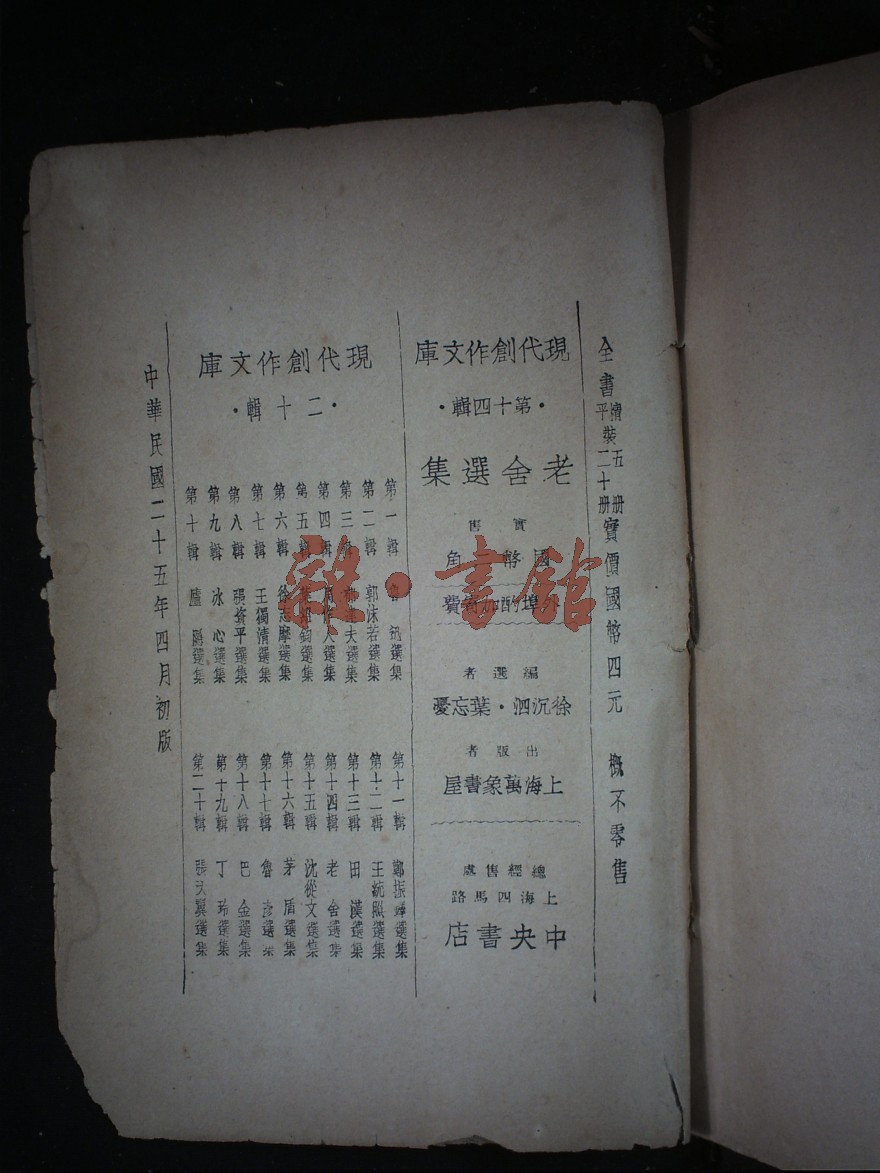 全書精裝五册平裝二十册實價國幣四元 概不零售
現代創作文庫
·第十四輯·
老舍選集
實售
國幣 角
外埠酌加寄費
編選者
徐沉泗·葉忘憂
出版者
上海萬象書屋
總經售處
上海四馬路
中央書店
現代創作文庫
·二十輯·
第一輯 魯迅選集
第二輯 郭沫若選集
第三輯 夫選集
第四輯 周作人選集
第五輯 葉紹鈞選集
第六輯 徐志摩選集
第七輯 王獨清選集
第八輯 張資平選集
第九輯 冰心選集
第十輯 廬隱選集
第十一輯 鄭振鐸選集
第十二輯 王統照選集
第十三輯 田漢選集
第十四輯 老舍選集
第十五輯 沈從文選集
第十六輯 茅盾選集
第十七輯 魯彥選集
第十八輯 巴金選集
第十九輯 丁玲選集
第二十輯 張天翼選集
中華民國二十五年四月初版
雜·書館